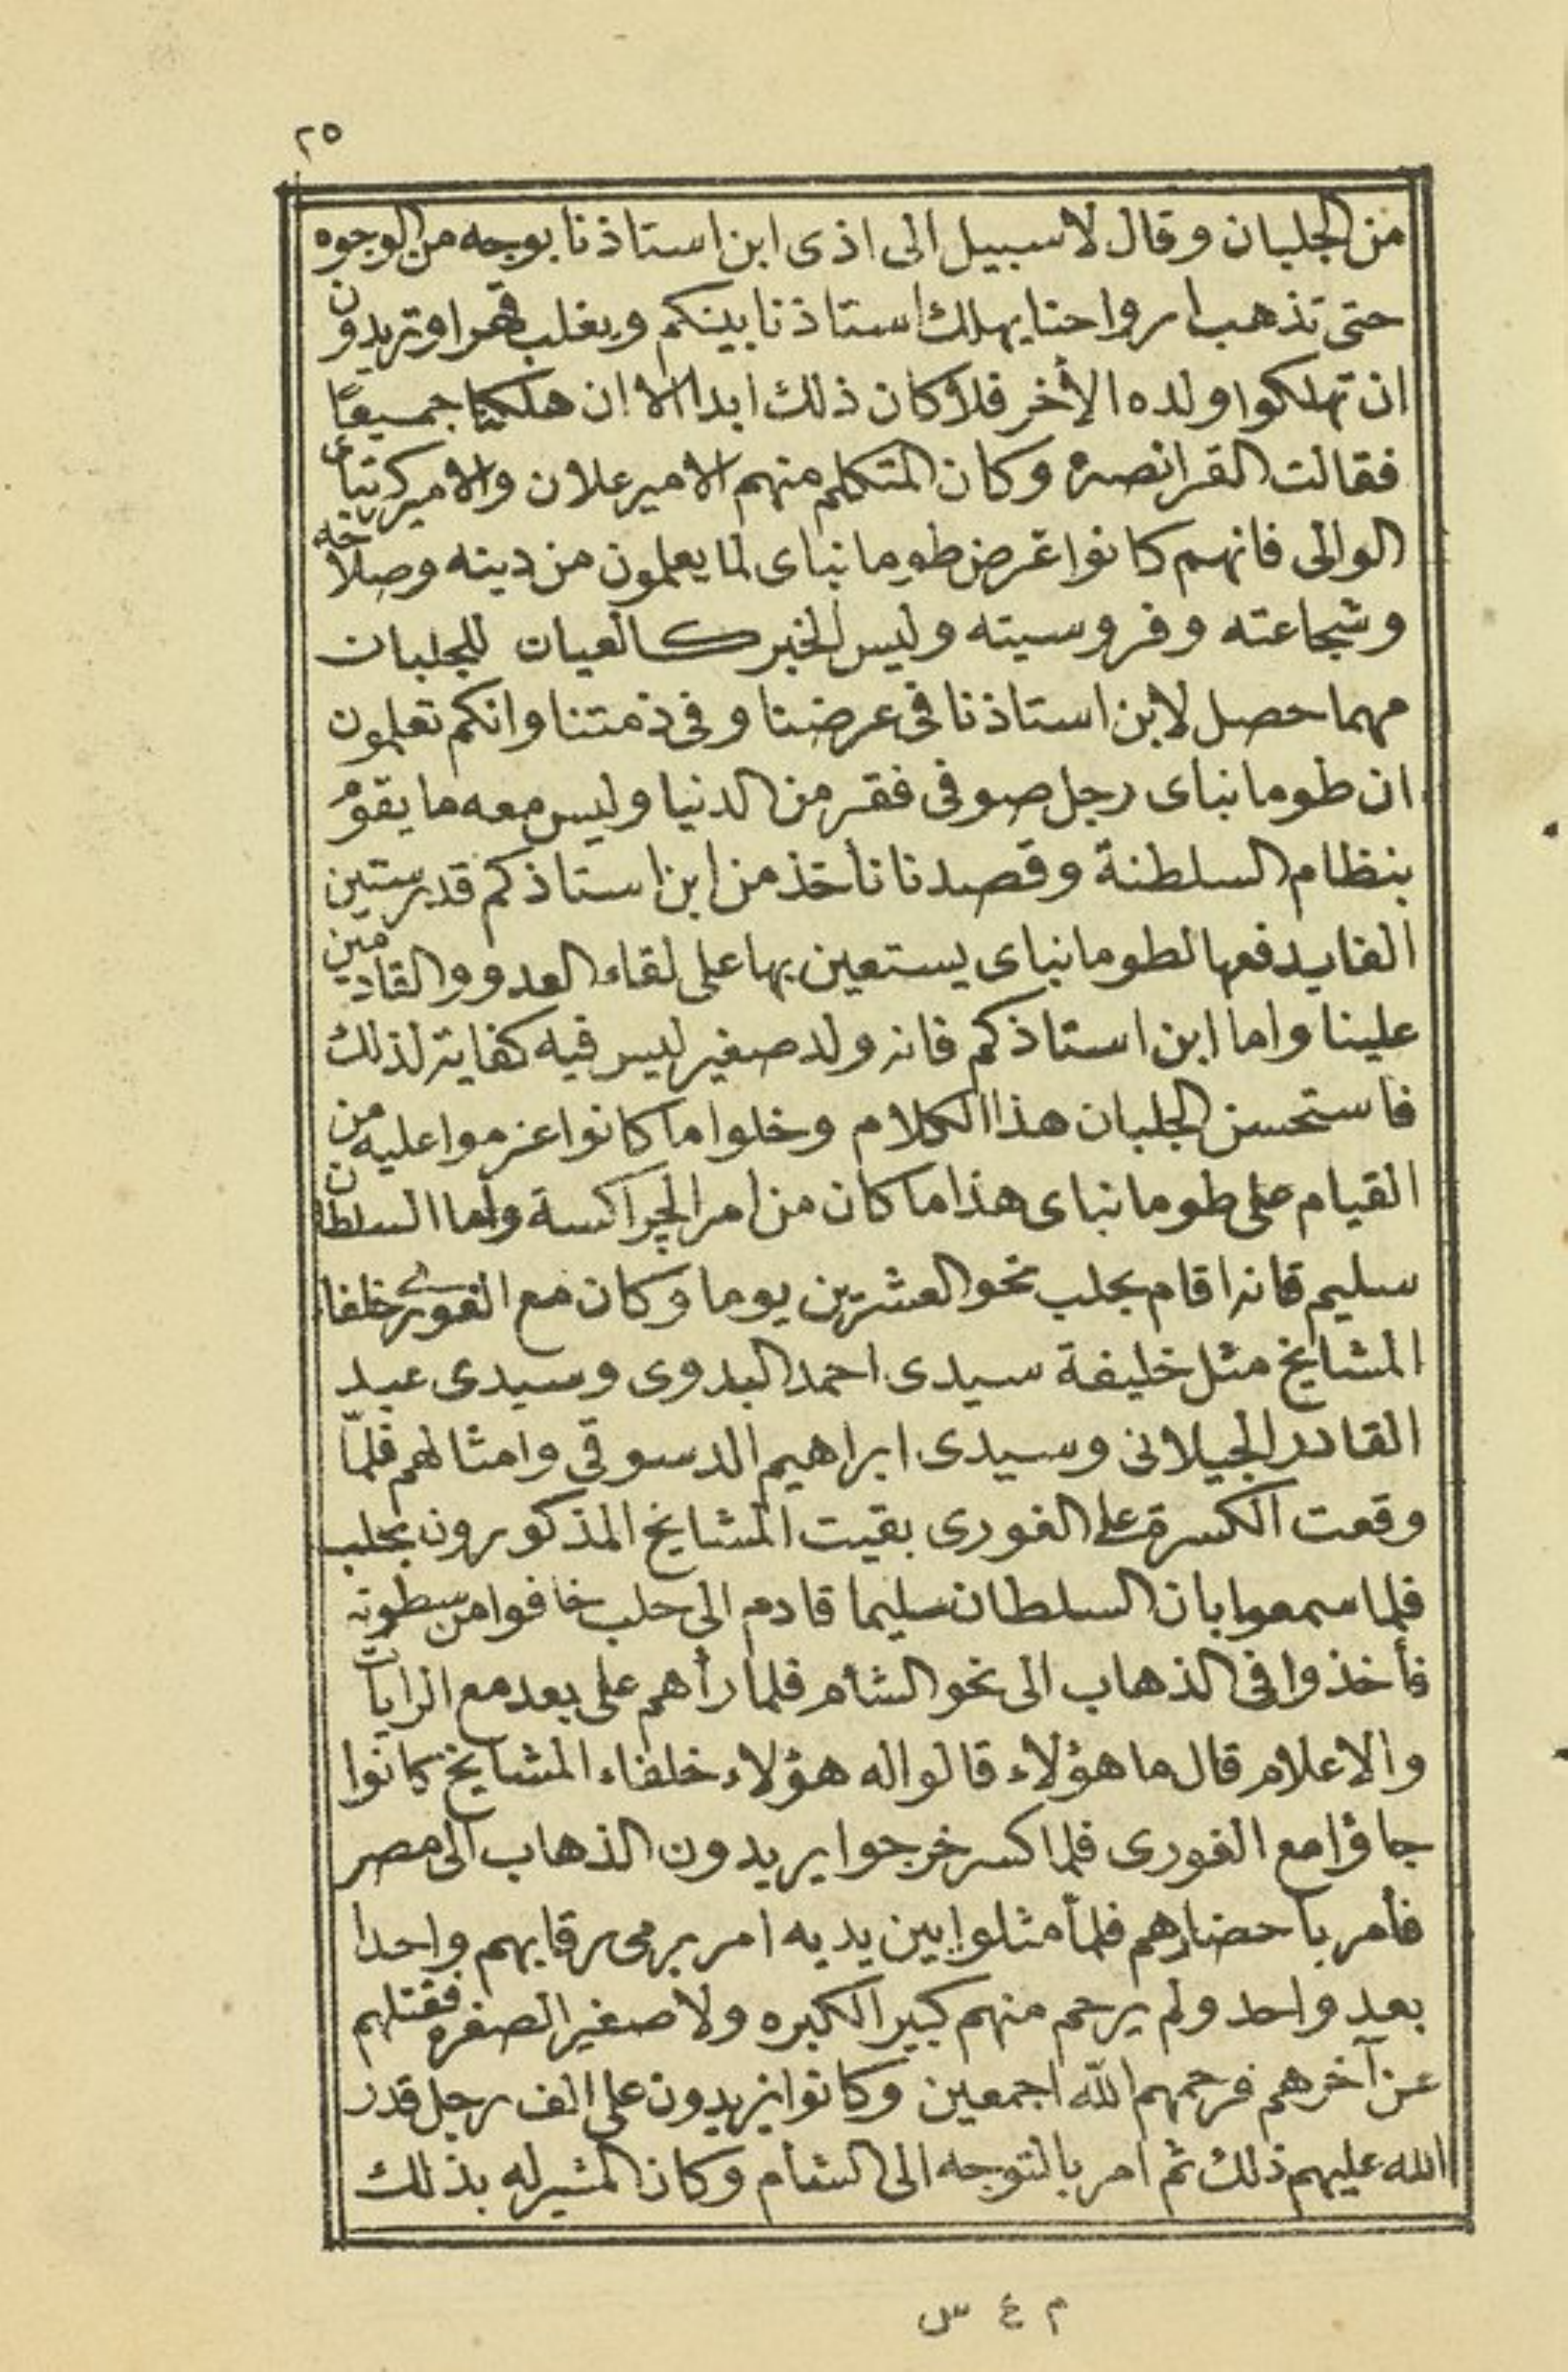 ٢٥
من الجلبان وقال لا سبيل الى اذى ابن استاذنا بوجه من الوجوه
حتى تذهب ارواحنا يهلك استاذنا بينكم ويغلب قهرا وتريدون
ان تهلكوا ولده الأخر فلا كان ذلك ابدا الا ان هلكنا جميعًا
فقالت القرانصة وكان المتكلم منهم الامير علان والامير كرتباى
الوالى فانهم كانوا غرض طومانباى لما يعلمون من دينه وصلاحه
وشجاعته وفروسيته وليس الخبر كالعيان للجلبان
مهما حصل لابن استاذنا فى عرضنا وفى ذمتنا وانكم تعلمون
ان طومانباى رجل صوفى فقر من الدنيا وليس معه ما يقوم
بنظام السلطنة وقصدنا نأخذ من ابن استاذكم قدر ستين
الفا يدفعها لطومانباى يستعين بها على لقاء العدو والقادمين
علينا واما ابن استاذكم فانه ولد صغير ليس فيه كفاية لذلك
فاستحسن الجلبان هذا الكلام وخلوا ما كانوا عزموا عليه من
القيام على طومانباى هذا ما كان من امر الچراكسة وأما السلطان
سليم فانه اقام بحلب نحو العشرين يوما وكان مع الغورى خلفاء
المشايخ مثل خليفة سيدى احمد البدوى وسيدى عبد
القادر الجيلانى وسيدى ابراهيم الدسوقى وامثالهم فلمّا
وقعت الكسرة على الغورى بقيت المشايخ المذكورون بحلب
فلما سمعوا بان السلطان سليما قادم الى حلب خافوا من سطوته
فأخذوا فى الذهاب الى نحو الشام فلما رأهم على بعد مع الرايات
والاعلام قال ما هؤلاء قالوا له هؤلاء خلفاء المشايخ كانوا
جاؤا مع الغورى فلما كسر خرجوا يريدون الذهاب الى مصر
فأمر باحضارهم فلمأ مثلوا بين يديه امر برمى رقابهم واحدا
بعد واحد ولم يرحم منهم كبيرا لكبره ولا صغيرا لصغره فقتلهم
عن آخرهم فرحمهم الله اجمعين وكانوا يزيدون على الف رجل قدر
الله عليهم ذلك ثم امر بالتوجه الى الشام وكان المشير له بذلك
م ٤ س